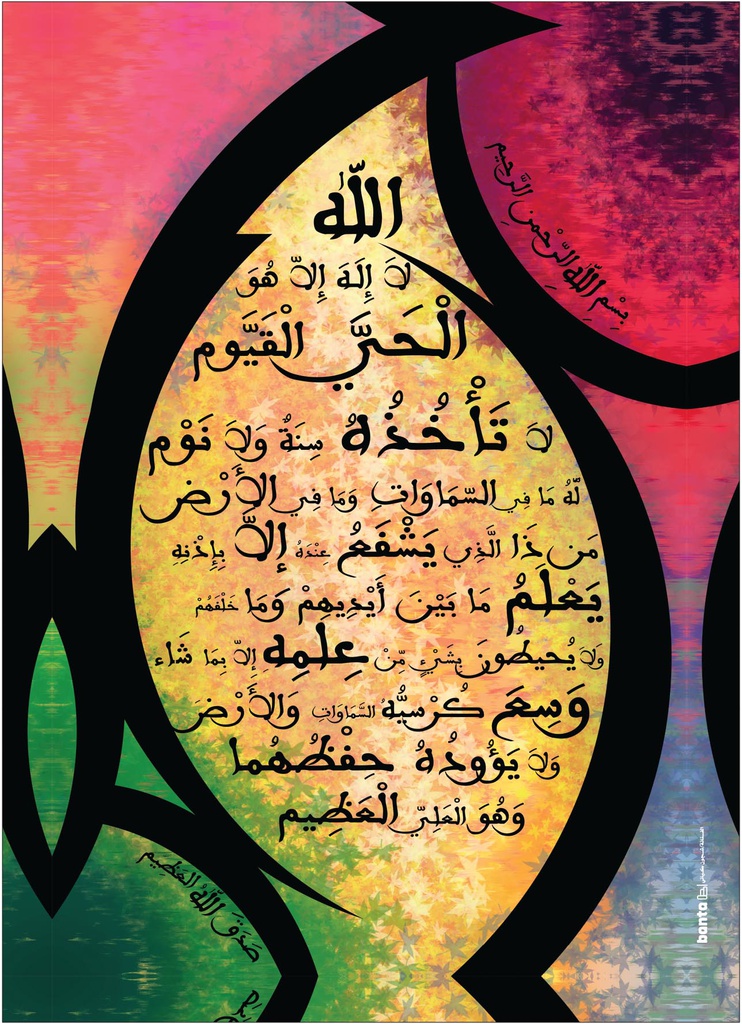 بِسْمِ اللّٰهِ الرَّحْمٰنِ الرَّحِيمِ
اللّٰه
لَا إِلَهَ إِلاَّ هُوَ
الْحَيَّ الْقَيَّوم
لَا تَأْخُذُهُ سِنَةٌ وَلَا نَوْم
لَّهُ مَا فِي السَّمَاوَاتِ وَمَا فِي الأَرْض
مَن ذَا الَّذِي يَشْفَعُ عِنْدَهُ إِلاَّ بِإِذْنِهِ
يَعْلَمُ مَا بَيْنَ أَيْدِيهِمْ وَمَا خَلْفَهُمْ
وَلَا يُحيطُونَ بِشَيْءٍ مِّنْ عِلمِه إِلاَّ بِمَا شَاء
وَسِعَ كُرْسِيُّهُ السَّمَاوَاتِ وَالاَرْضَ
وَلَا يَؤُودُهُ حِفْظُهُما
وَهُوَ الْعَلِيّ الْعَظِيم
صَدَقَ اللّٰهُ العَظِيم
banta